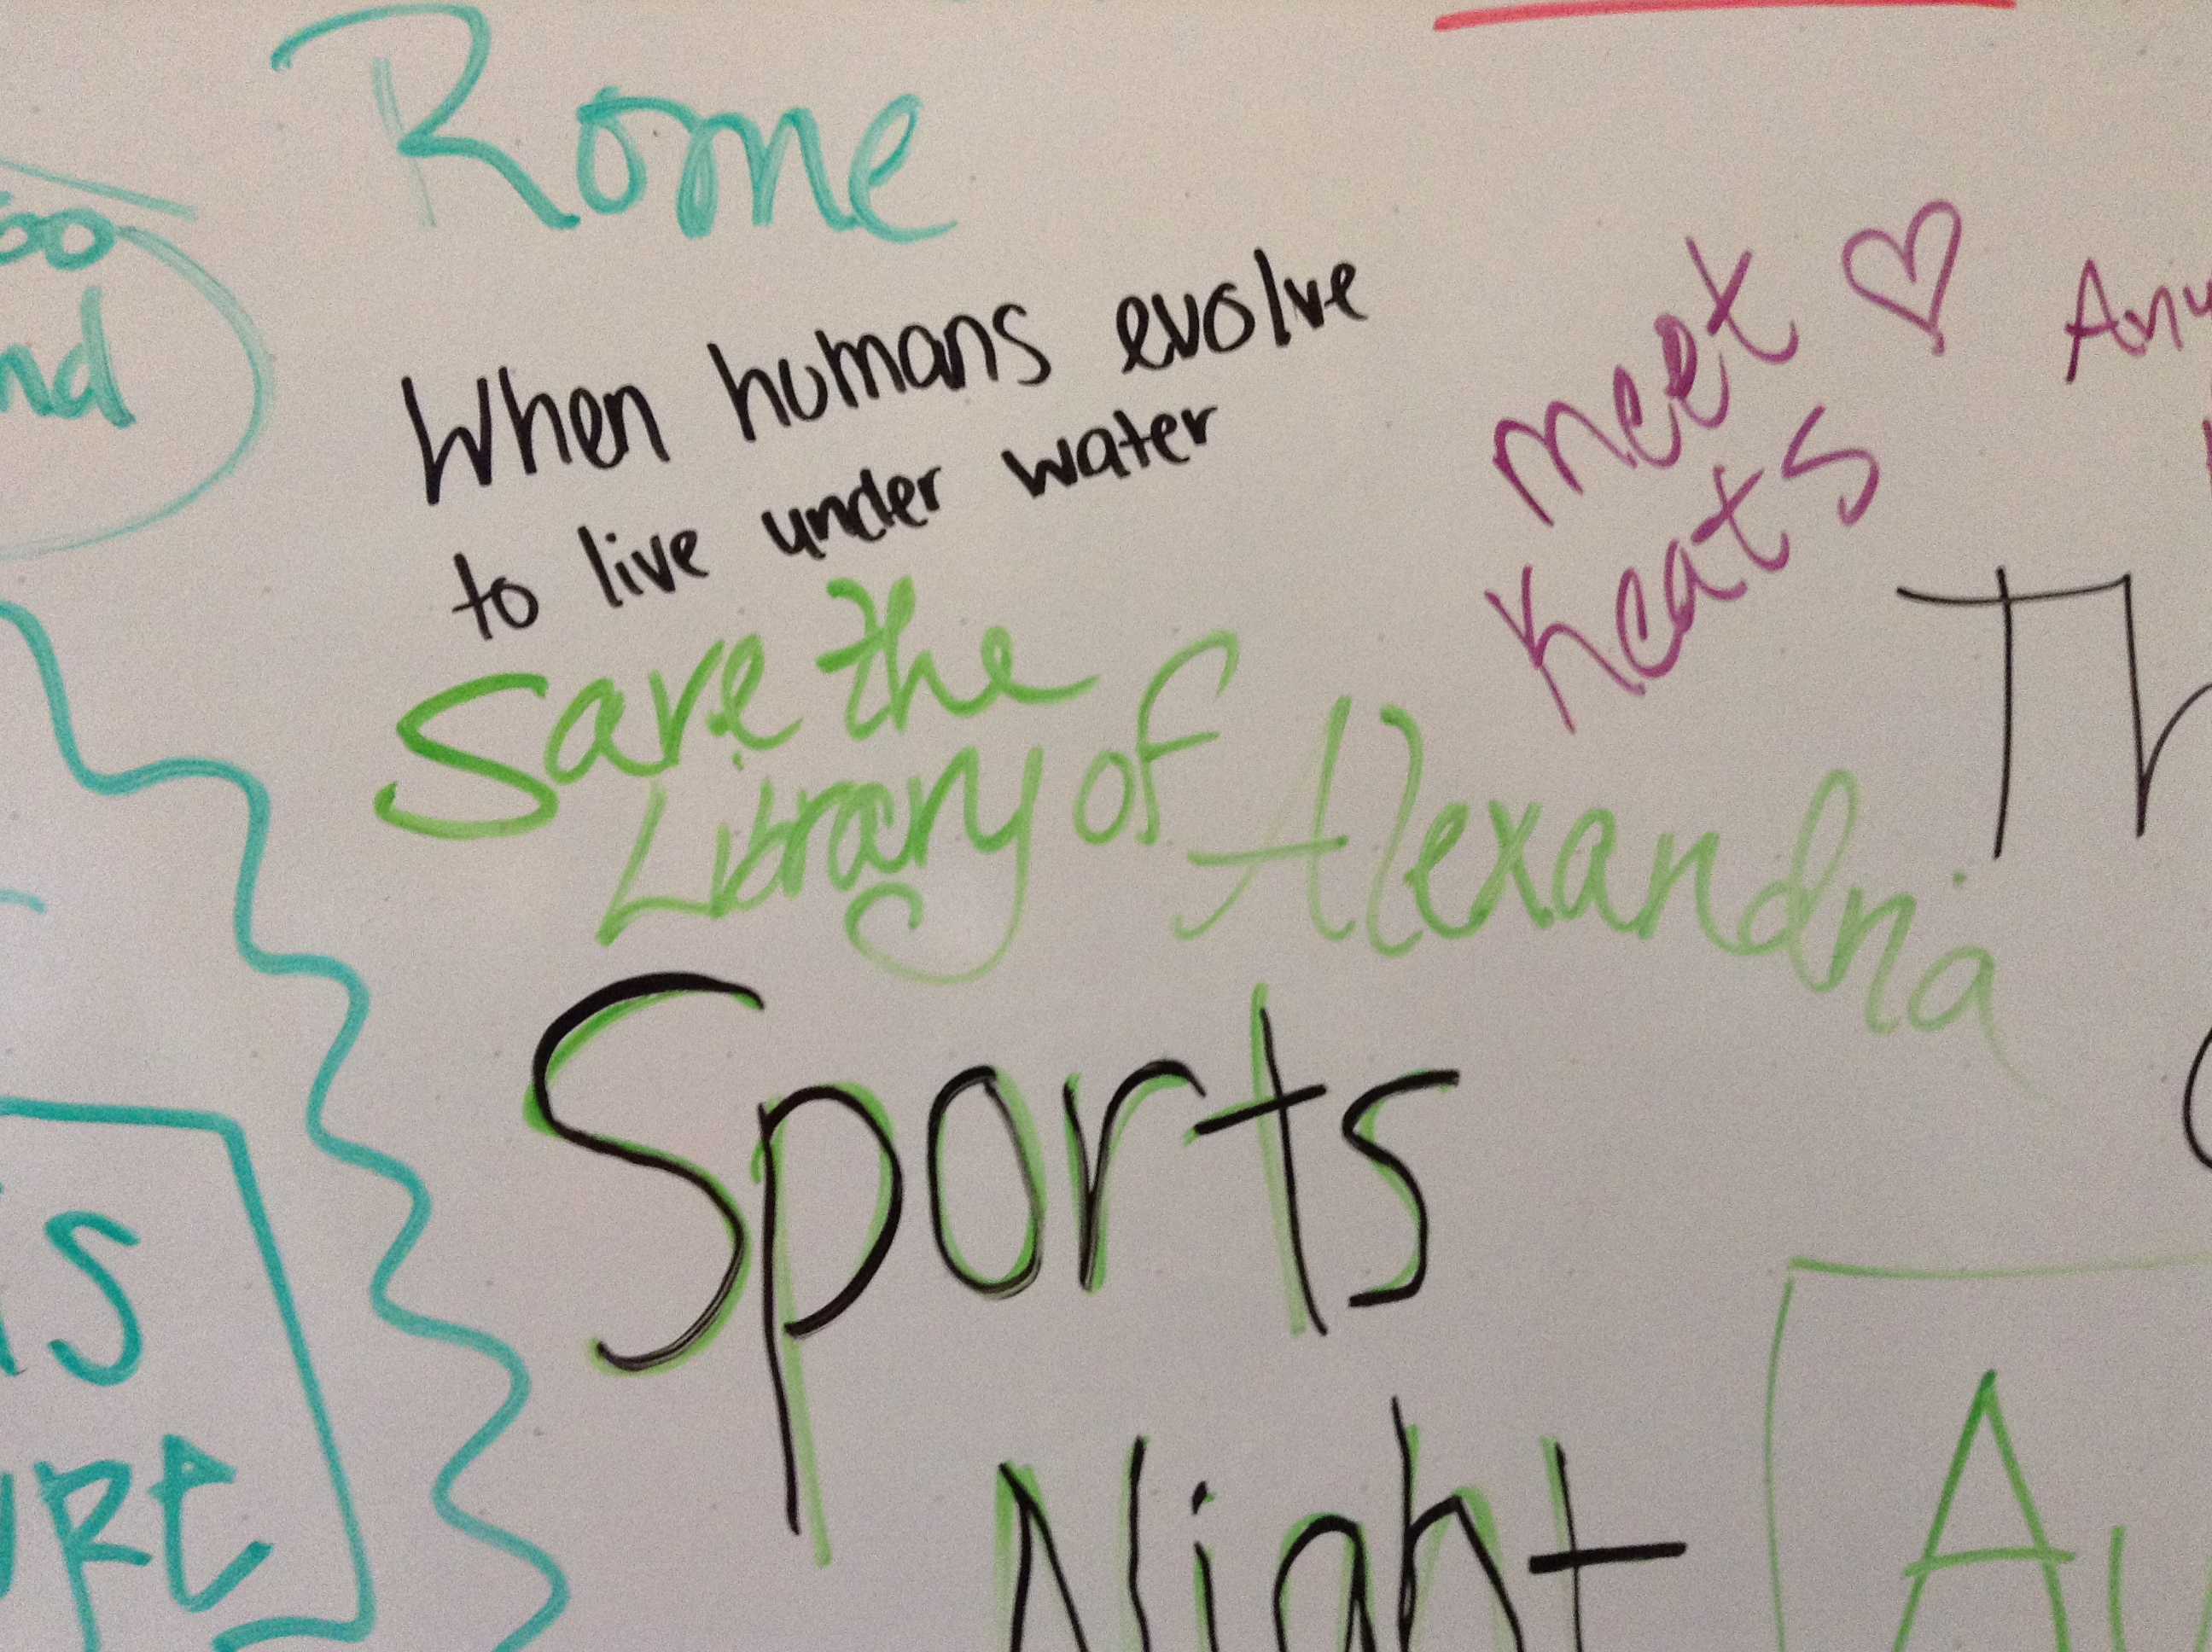 Rome
When humans evolve
to live under water
meet
Keats
Save the
Library of
Alexandria
Sports
Night